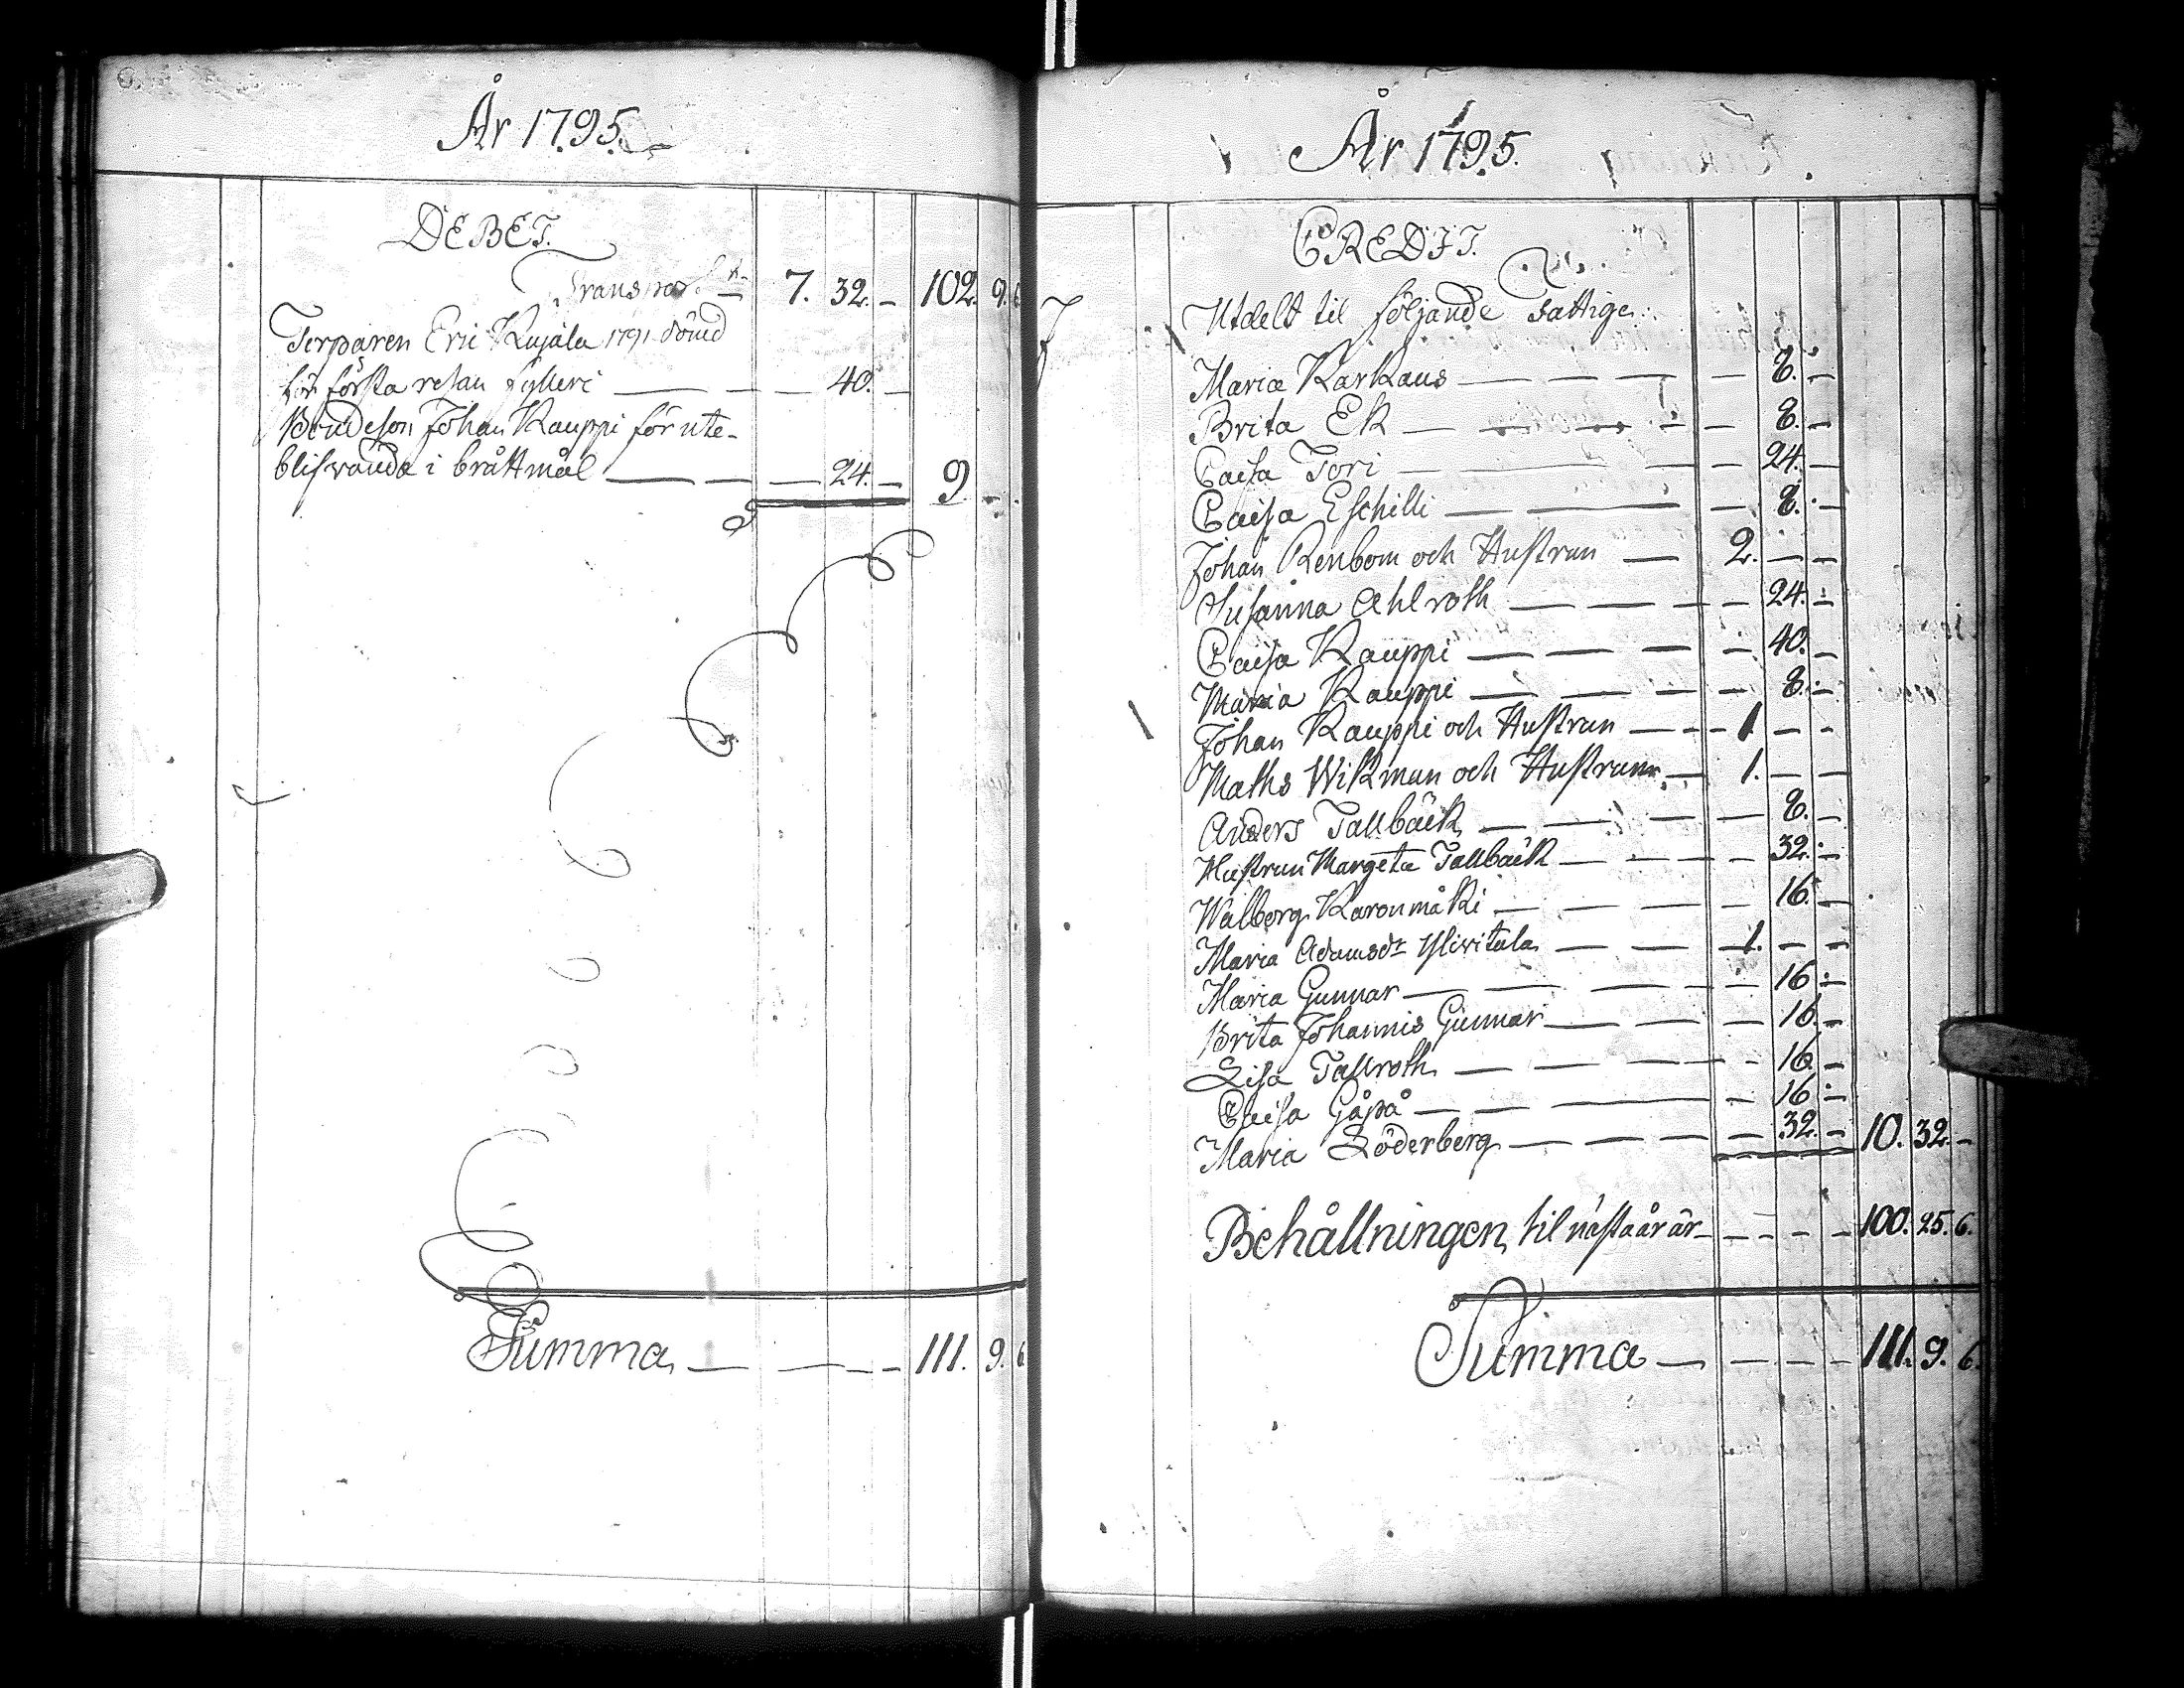 År 1795.
DEBET.
Transport 7. 32. — 102. 9. 6
Torparen Eric Kujala 1791 dömd
för första resan fylleri — — 40. —
Bondeson Johan Kauppi för ute-
blifvande i bråttmål — — 24. — 9 -
Summa — — — 111. 9. 6
År 1795.
CREDIT.
Utdelt til följande Fattige:
Maria Karkaus — — 8. —
Brita Ek — — 8. —
Caisa Tori — — 24. —
Caisa Eschilli — — 8. —
Johan Renbom och Hustrun — 2. — —
Susanna Ahlroth — — 24. —
Caisa Kauppi — — 40. —
Maria Kauppi — — 8. —
Johan Kauppi och Hustrun — 1. — —
Maths Wikman och Hustrun — 1. — —
Anders Tallbäck — — 8. —
Hustrun Margeta Tallbäck — — 32. —
Walborg Karonmäki — — 16. —
Maria Adamsdr Ylivitala — 1. — —
Maria Gunnar — — 16 —
Brita Johannis Gunnar — — 16. —
Lisa Tallroth — — 16. —
Caisa Gåpå — — 16 —
Maria Söderberg — — 32. — 10. 32. —
Behållningen til nästa år är — — — 100. 25. 6.
Summa — — — 111. 9. 6.